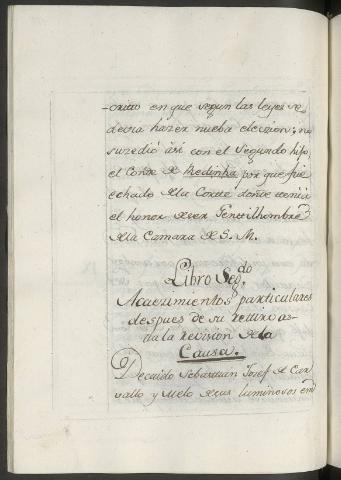 -cricio en que segun las leyes se
devia hazer nueba eleccion; no
suzedió asi con el Segundo hijo,
el Conde de Redinha por que fue
echado de la Corte donde tenia
el honor de ser Gentilhombre
de la Camara de S. M.
Libro Seg.do
Acaezimientos particulares
despues de su retiro as-
da la revision de la
Causa.
Decaido Sebastian Josef de Car
vallo y Melo de sus luminosos em